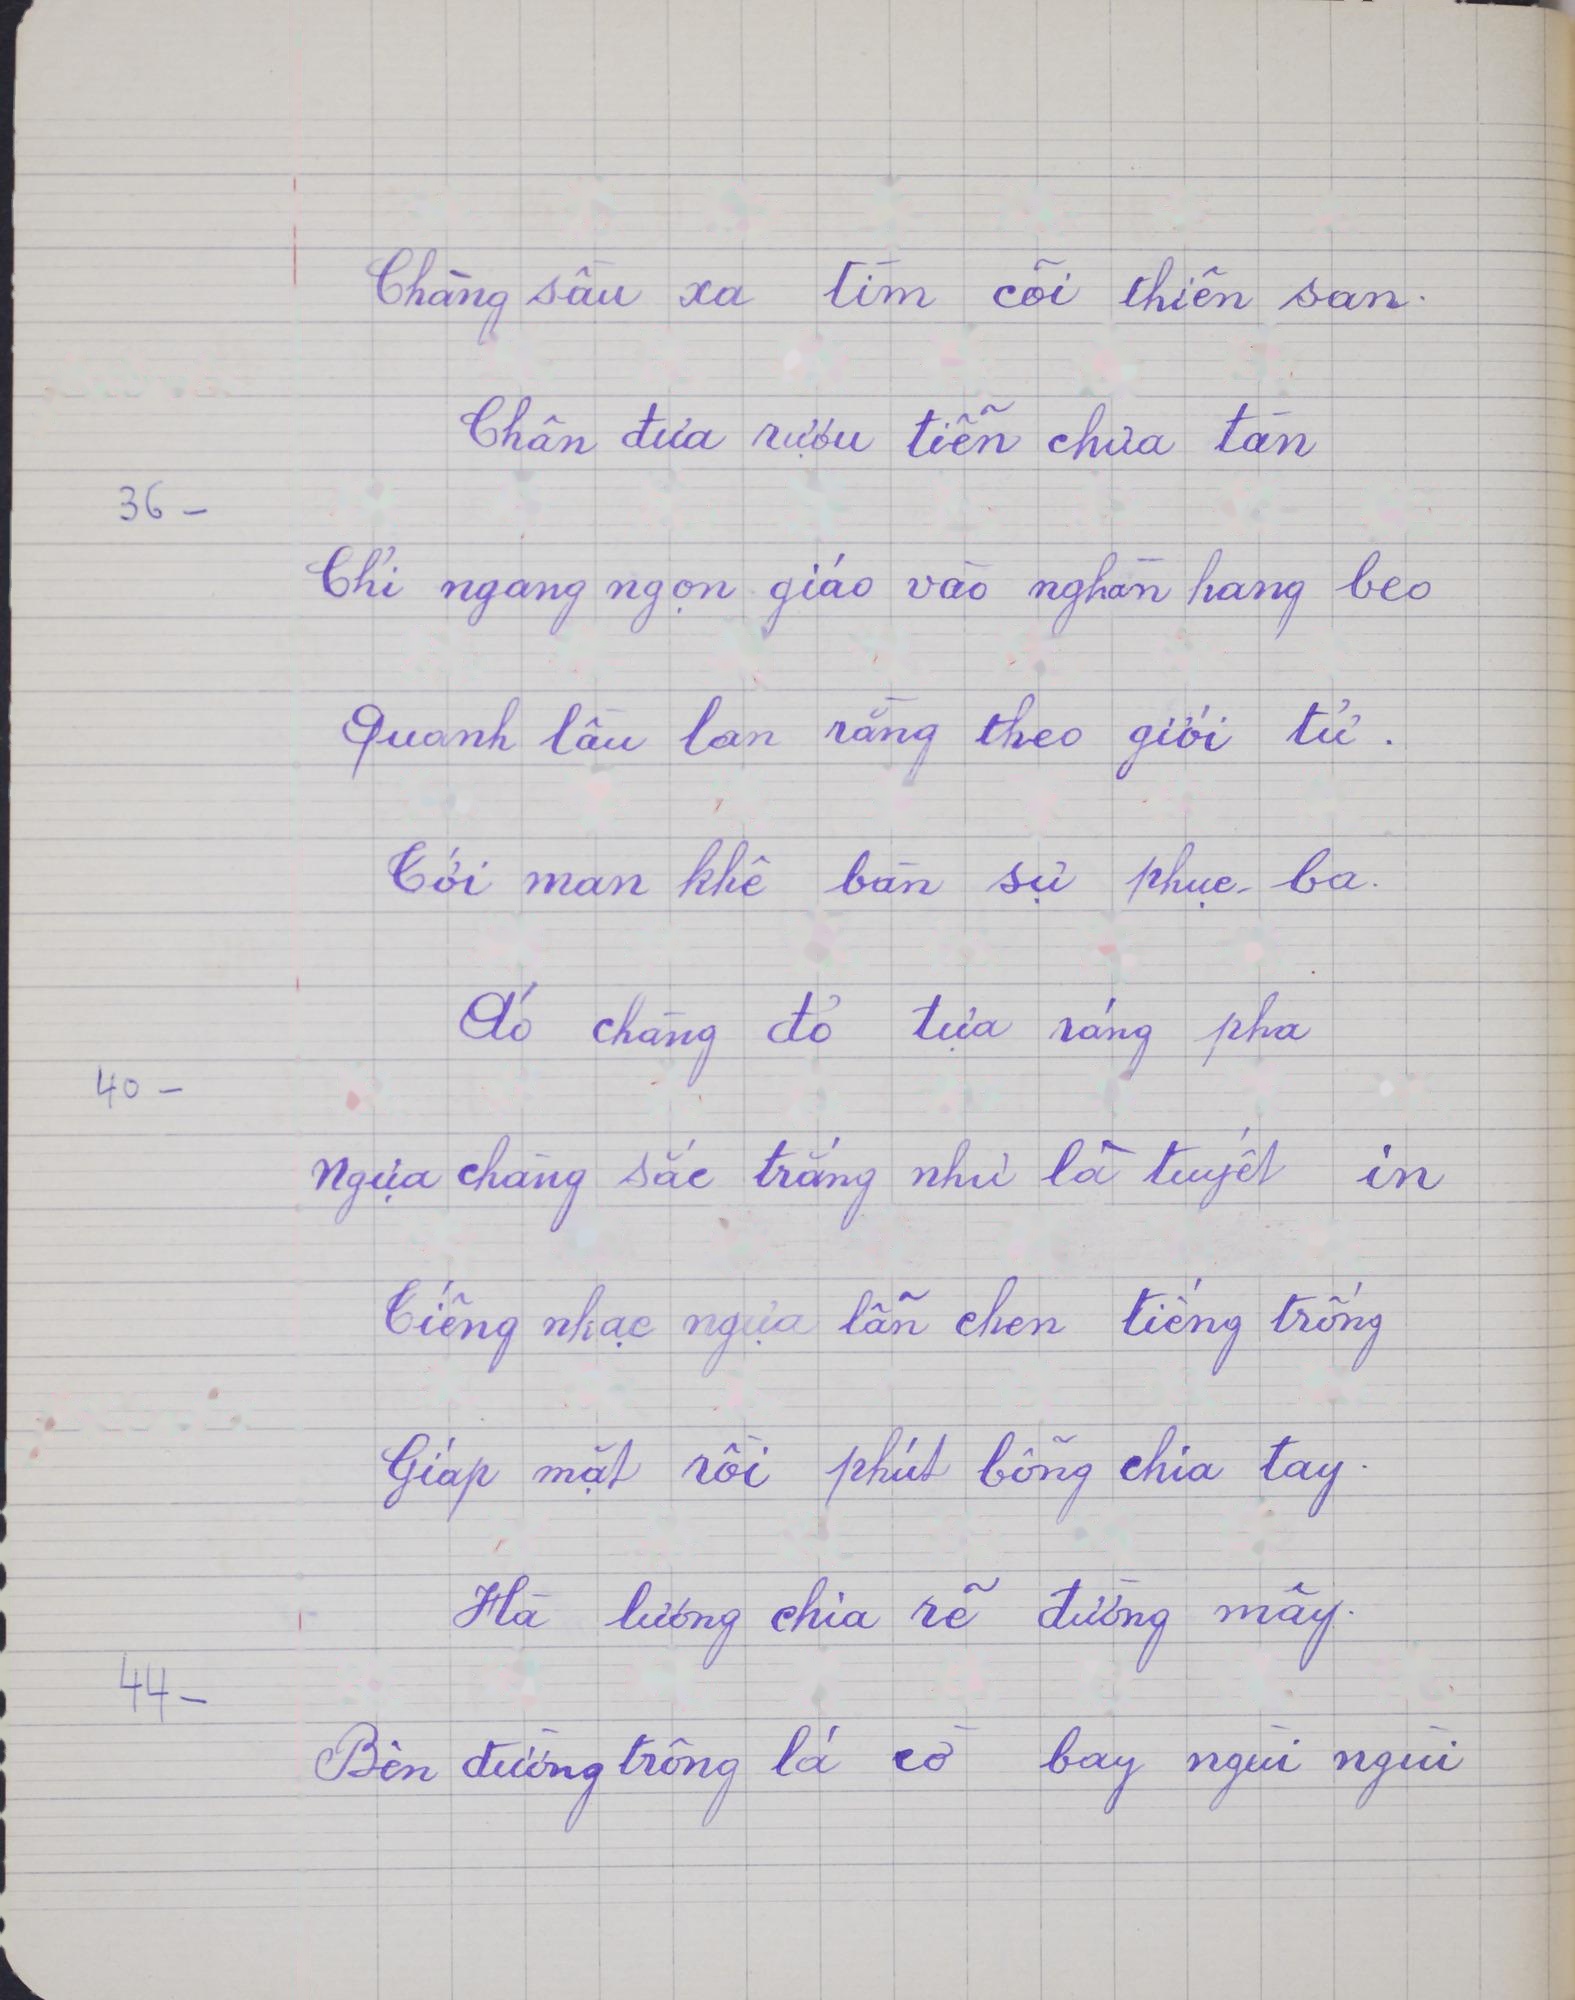 Chàng sầu xa tìm cõi thiên san.
Chân đưa rượu tiễn chưa tàn
36 -
Chỉ ngang ngọn giáo vào nghàn hang beo
Quanh lầu lan rằng theo giới tử.
Tới man khê bàn sự phục-ba.
Áo chàng đỏ tựa ráng pha
40 -
Ngựa chàng sắc trắng như là tuyết in
Tiếng nhạc ngựa lẫn chen tiếng trống
Giáp mặt rồi phút bỗng chia tay.
Hà lương chia rẽ đường mây.
44 -
Bên đường trông lá cờ bay ngùi ngùi